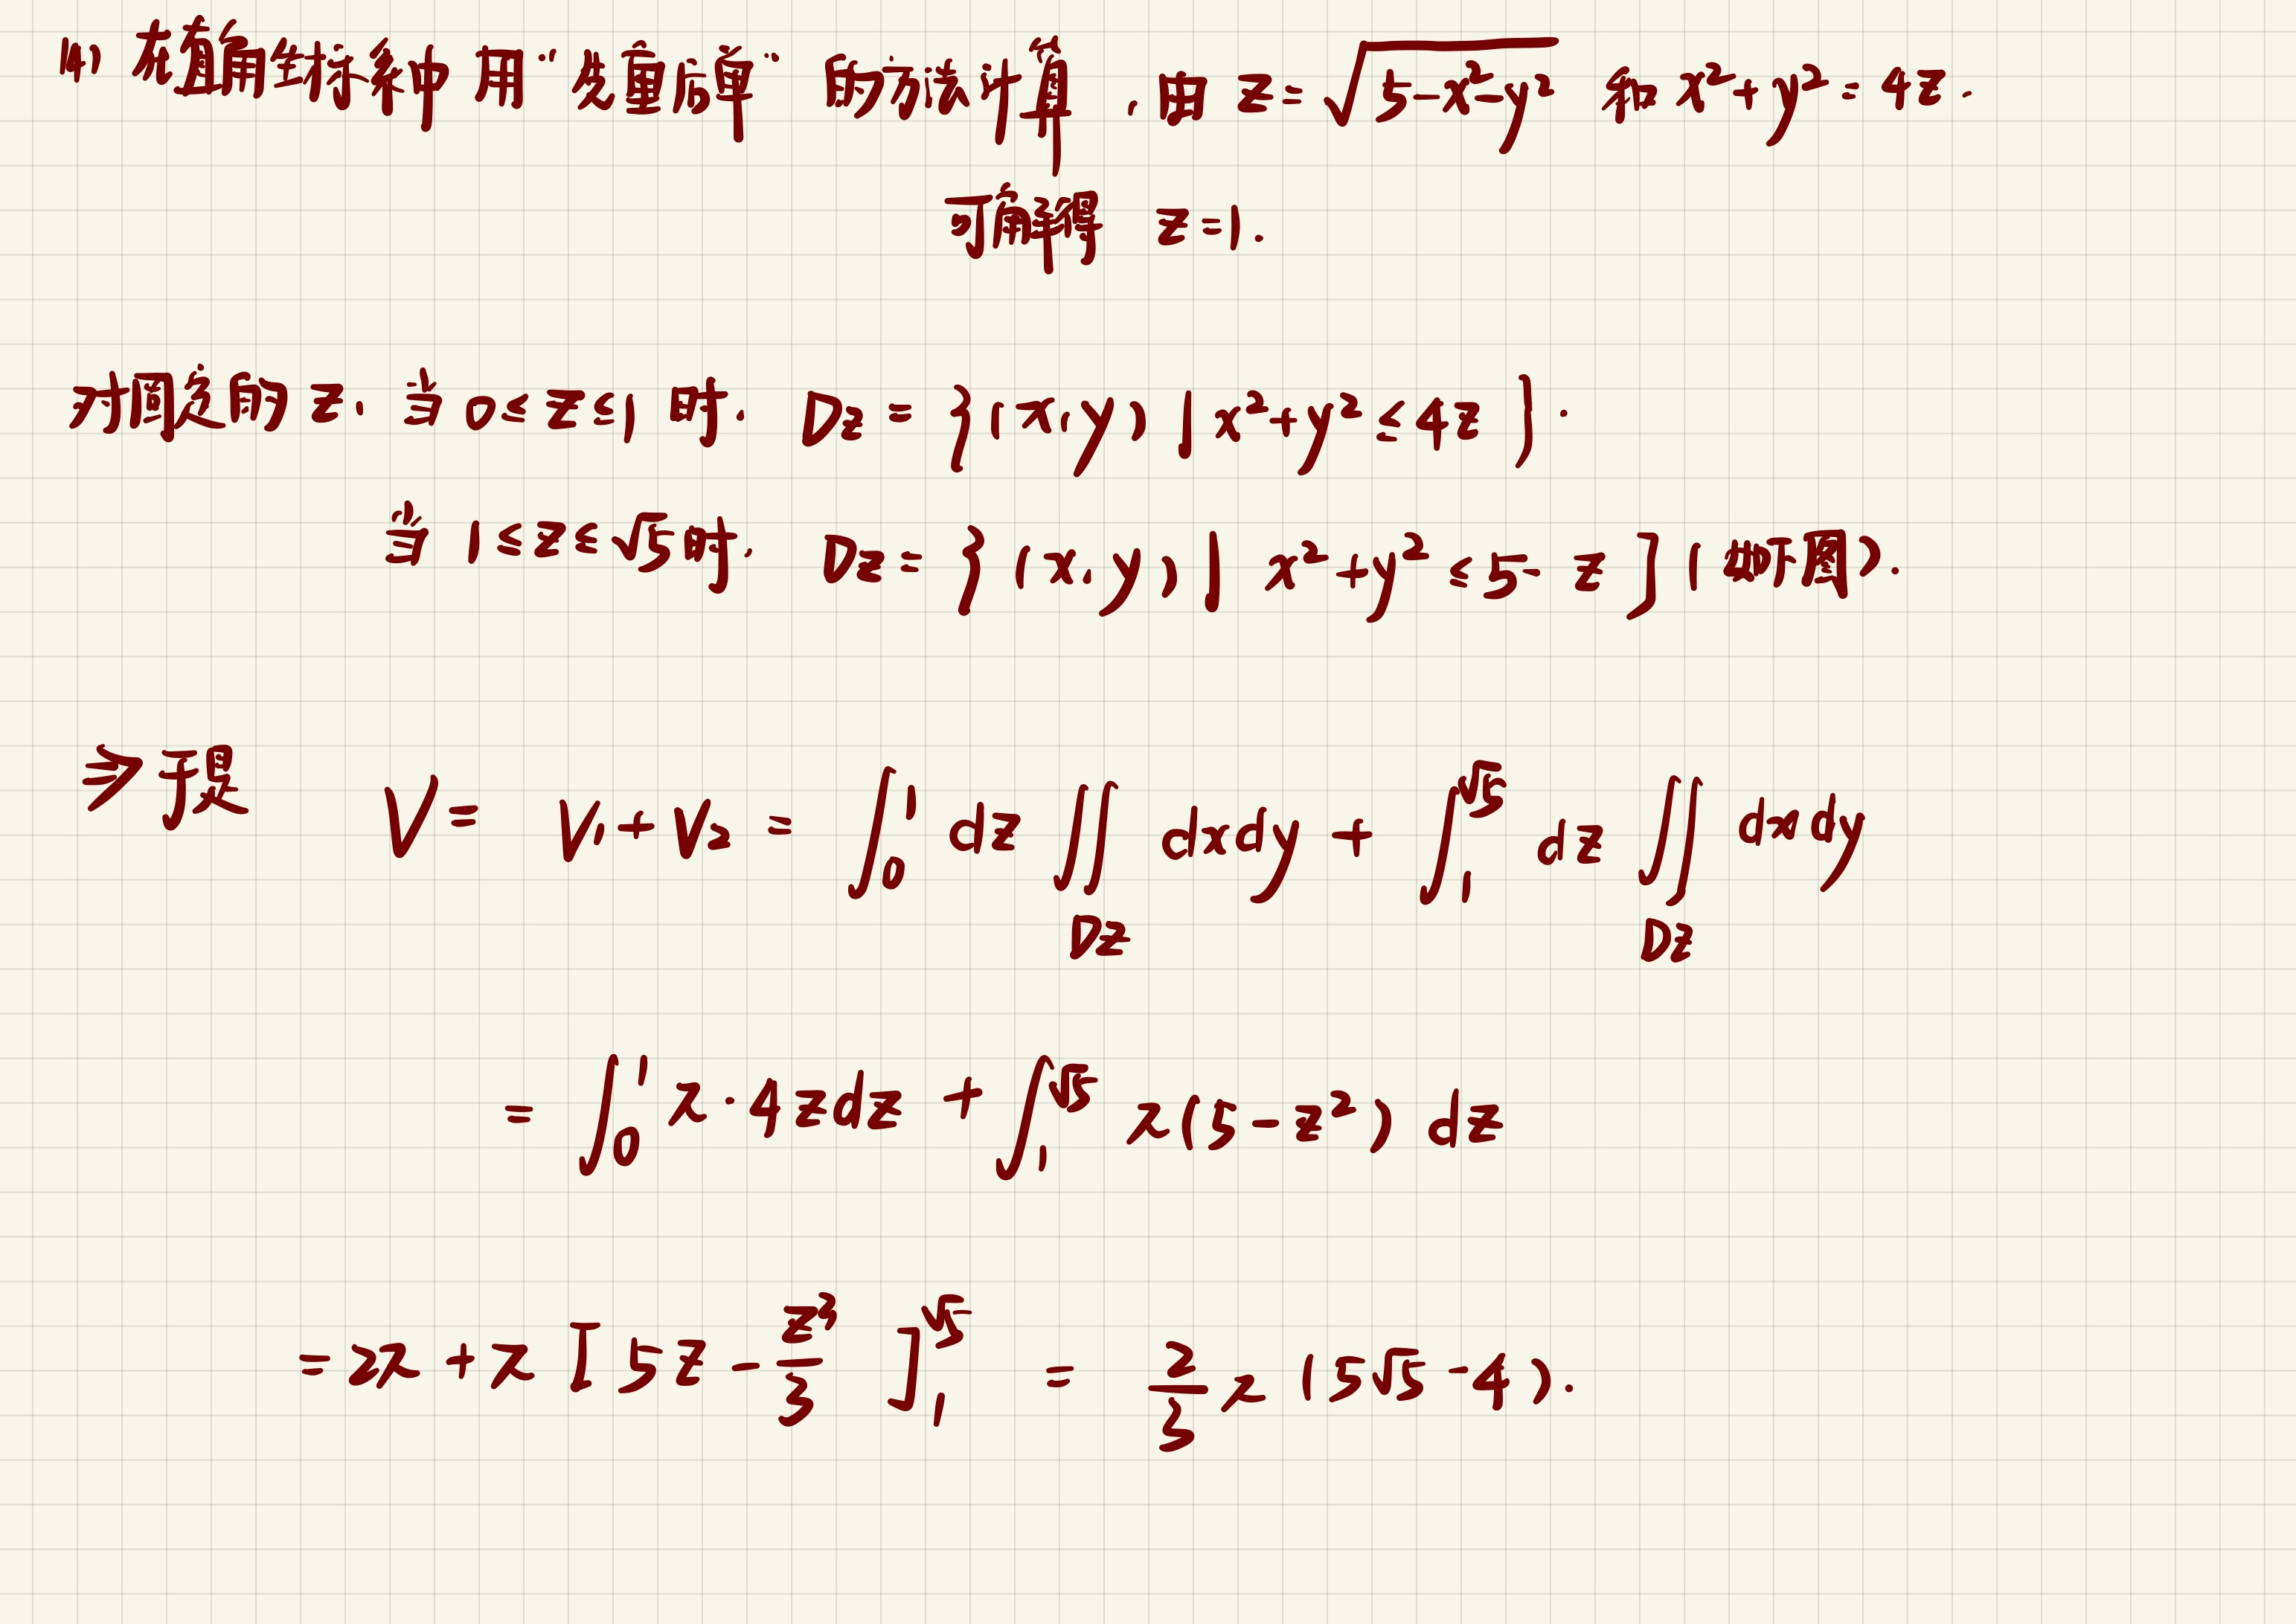 (1) 在直角坐标系中用“先重后单”的方法计算,由 z=√(5-x²-y²) 和 x²+y²=4z.
可解得 z=1.
对固定的 z. 当 0≤z≤1 时. Dz={(x,y)|x²+y²≤4z}.
当 1≤z≤√5 时. Dz={(x,y)|x²+y²≤5-z}(如下图).
⇒于是 V=V₁+V₂=∫₀¹dz∬_Dz dxdy+∫₁^√5 dz∬_Dz dxdy
=∫₀¹π·4zdz+∫₁^√5 π(5-z²)dz
=2π+π[5z-z³/3]₁^√5=2/3π(5√5-4).